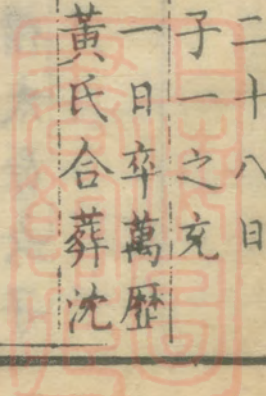 二十八日
子一之充
一日卒萬歷
黃氏合葬沈